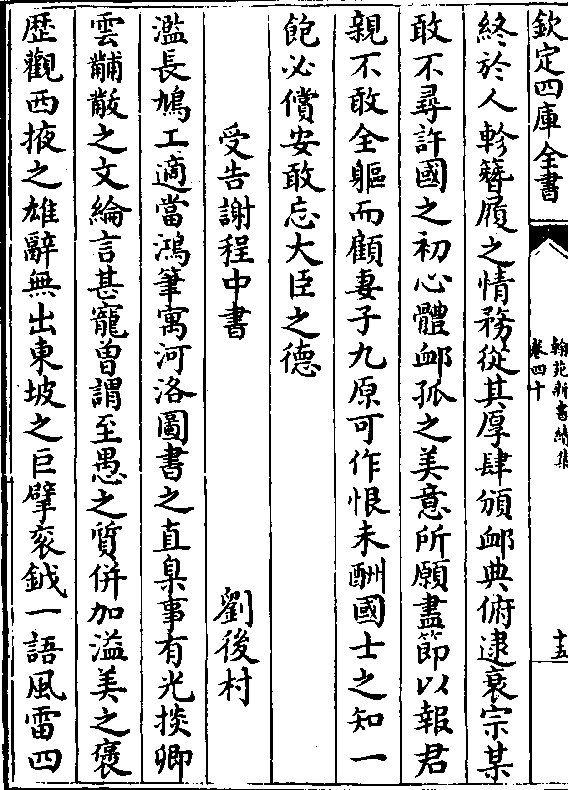 欽定四庫全書
翰苑新書續集
卷四十
十五
終於人軫簪履之情務從其厚肆頒䘏典俯逮衰宗某
敢不尋許國之初心體䘏孤之美意所願盡節以報君
親不敢全軀而顧妻子九原可作恨未酬國士之知一
飽必償安敢忘大臣之德
受告謝程中書 劉後村
濫長鳩工適當鴻筆寓河洛圖書之直臬事有光掞卿
雲黼黻之文綸言甚寵曾謂至愚之質併加溢美之褒
歴觀西掖之雄辭無出東坡之巨擘衮鉞一語風雷四